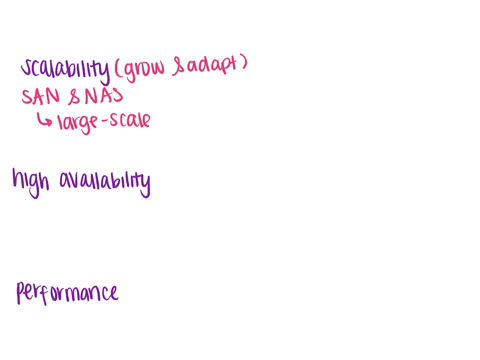 scalability (grow & adapt)
SAN & NAS
↳ large-scale
high availability
performance